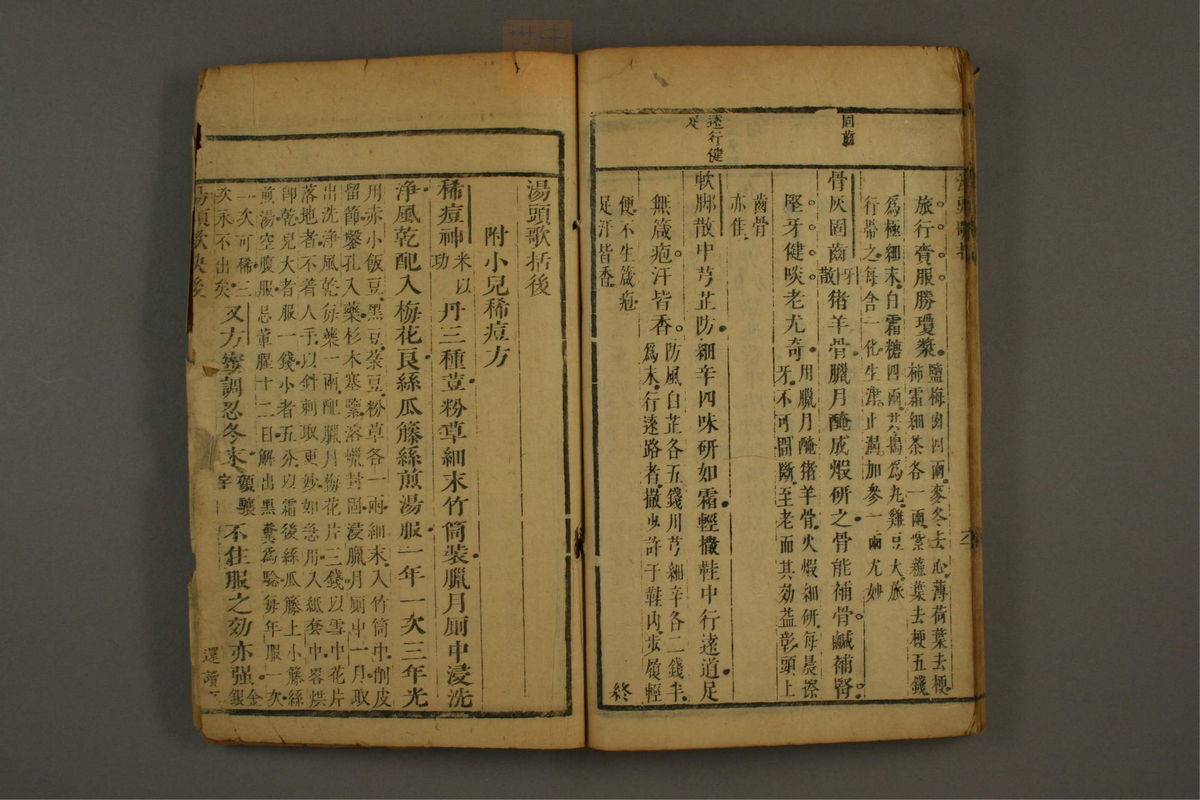 旅行賫服勝瓊漿鹽梅肉四兩麥冬去心薄荷葉去梗
柿霜細茶各一兩紫蘇葉去梗五錢
為極細末白霜糖四兩共搗為丸雞豆大旅
行帶之每含一化生津止渴加參一兩尤妙
固齒
骨灰固齒牙散猪羊骨臘月醃成煅研之骨能補骨鹹補腎
堅牙健啖老尤奇用臘月醃猪羊骨火煅細研每晨擦
牙不可間斷至老而其効益彰頭上
齒骨
亦佳
遠行健
足
軟脚散中芎芷防細辛四味研如霜輕撒鞋中行遠道足
無箴疱汗皆香防風白芷各五錢川芎細辛各二錢半
為末行遠路者撒少許于鞋內步履輕
便不生箴疱
足汗皆香
終
湯頭歌括後
附小兒稀痘方
稀痘神功米以丹三種荳粉草細末竹筒裝臘月厠中浸洗
净風乾配入梅花良絲瓜籐絲煎湯服一年一次三年光
用赤小飯豆黑豆菉豆粉草各一兩細末入竹筒中削皮
留節鑿孔入藥杉木塞緊溶蠟封固浸臘月厠中一月取
出洗淨風乾每藥一兩配臘月梅花片三錢以雪中花片
落地者不着人手以針刺取更妙如急用入紙套中畧烘
即乾兒大者服一錢小者五分以霜後絲瓜籐上小籐絲
煎湯空腹服忌葷腥十二日解出黑糞為驗每年服一次
一次可稀三
次永不出矣又方蜜調忍冬末顧驤宇不住服之効亦强金銀
湯頭歌訣後